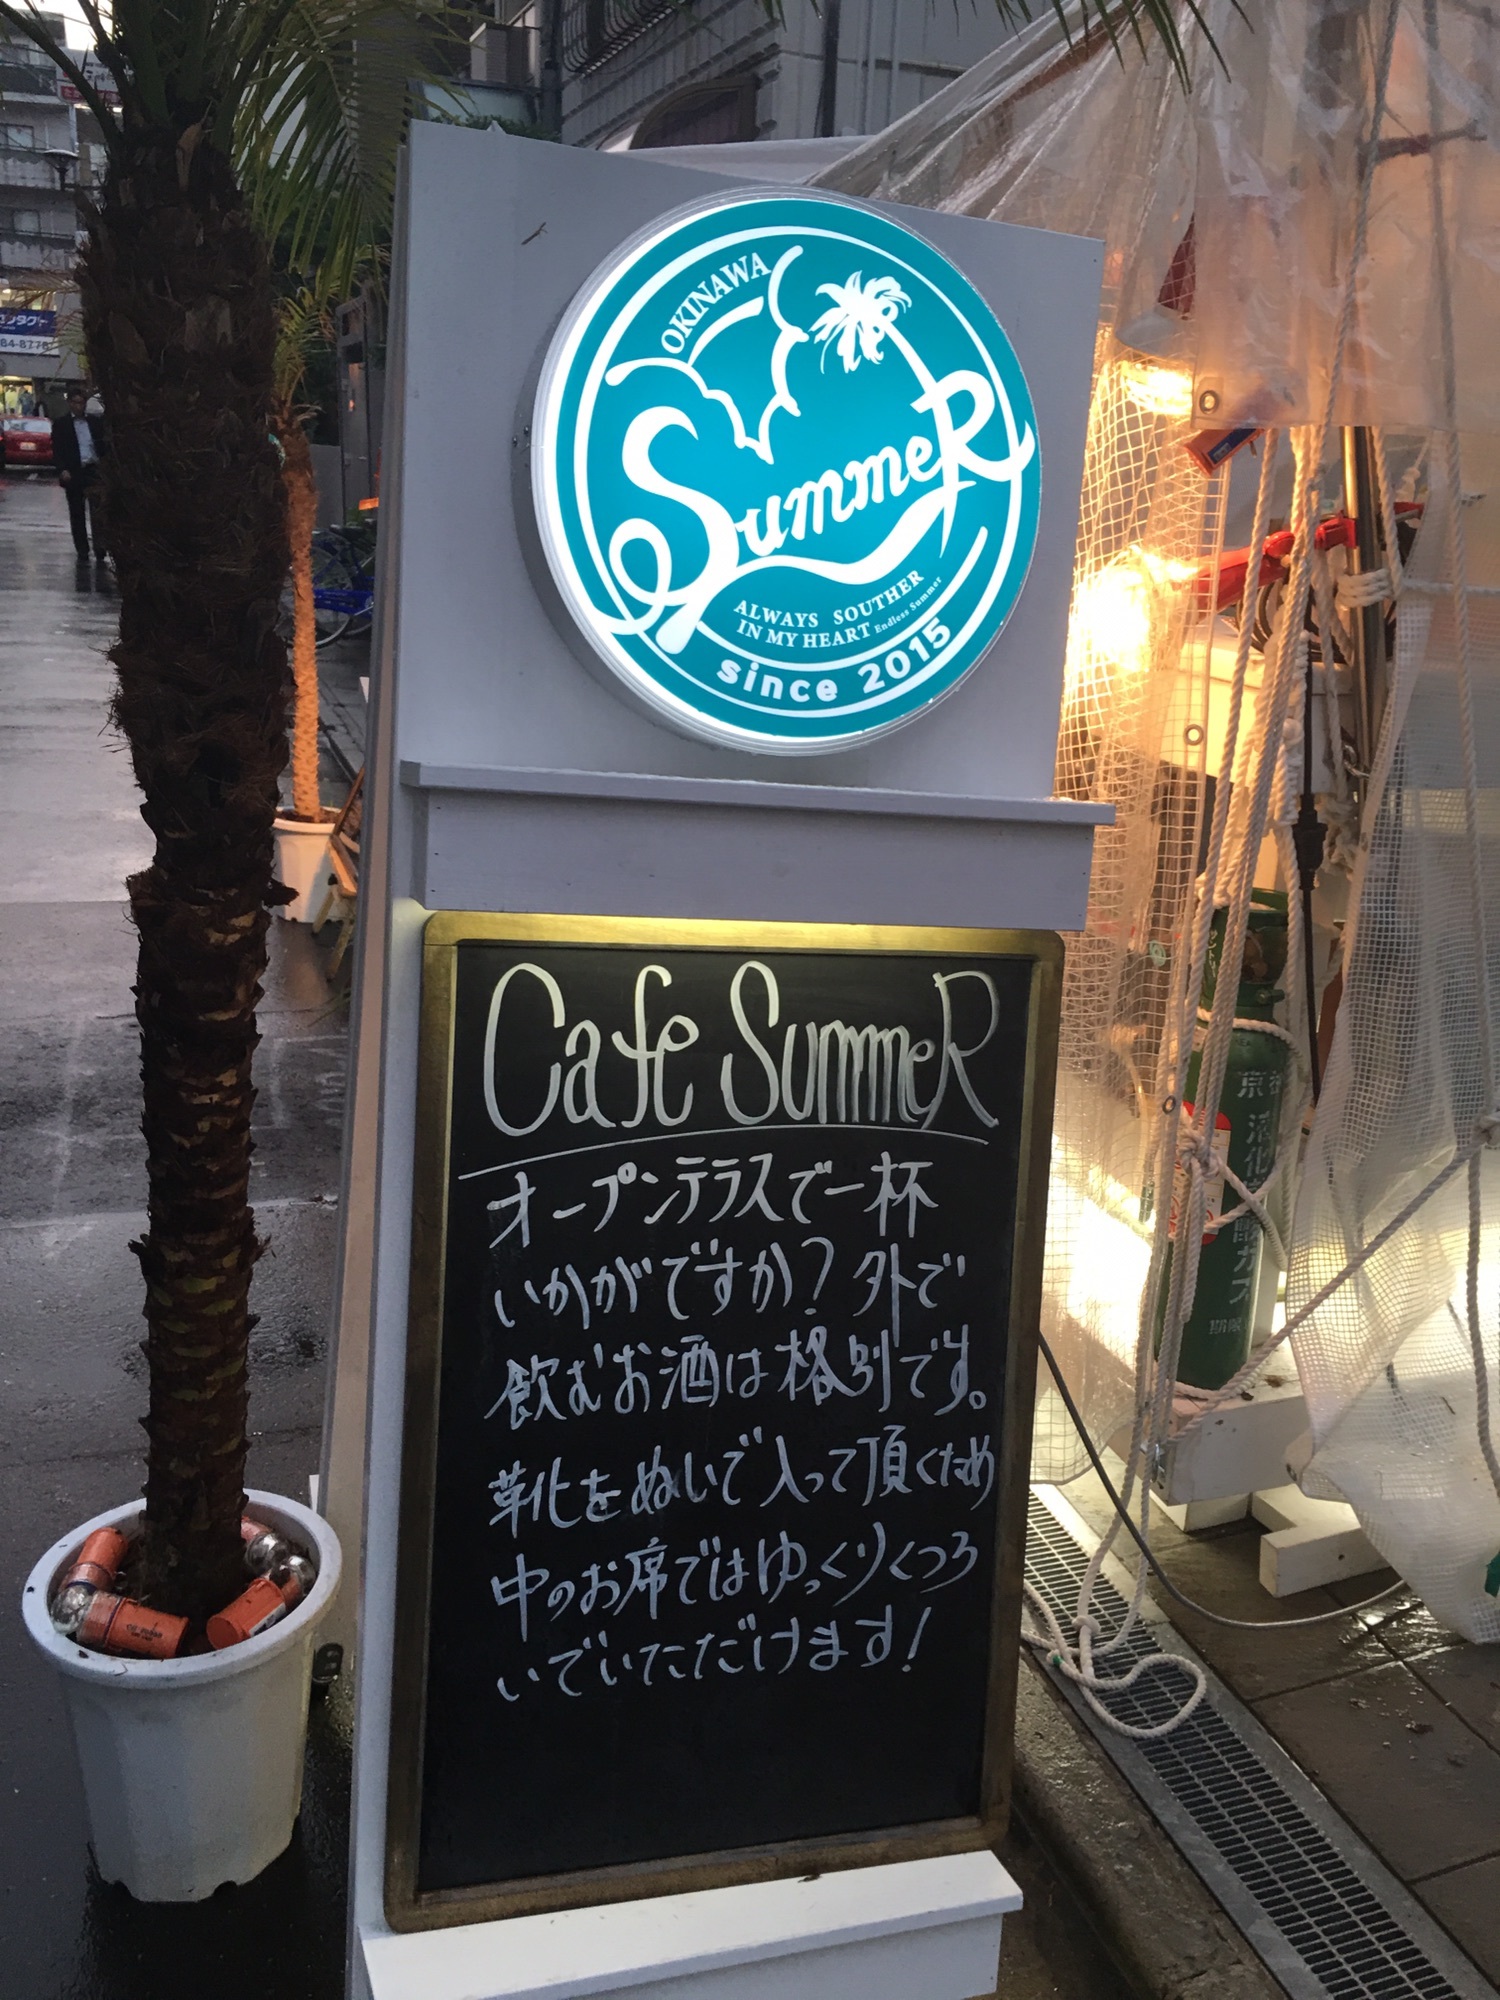 OKINAWA
SummeR
ALWAYS SOUTHER
IN MY HEART Endless Summer
since 2015
Cafe SummeR
オープンテラスで一杯
いかがですか?外で
飲むお酒は格別です。
靴をぬいで入って頂くため
中のお席ではゆっくりくつろ
いでいただけます!
84-8778
液化炭酸ガス